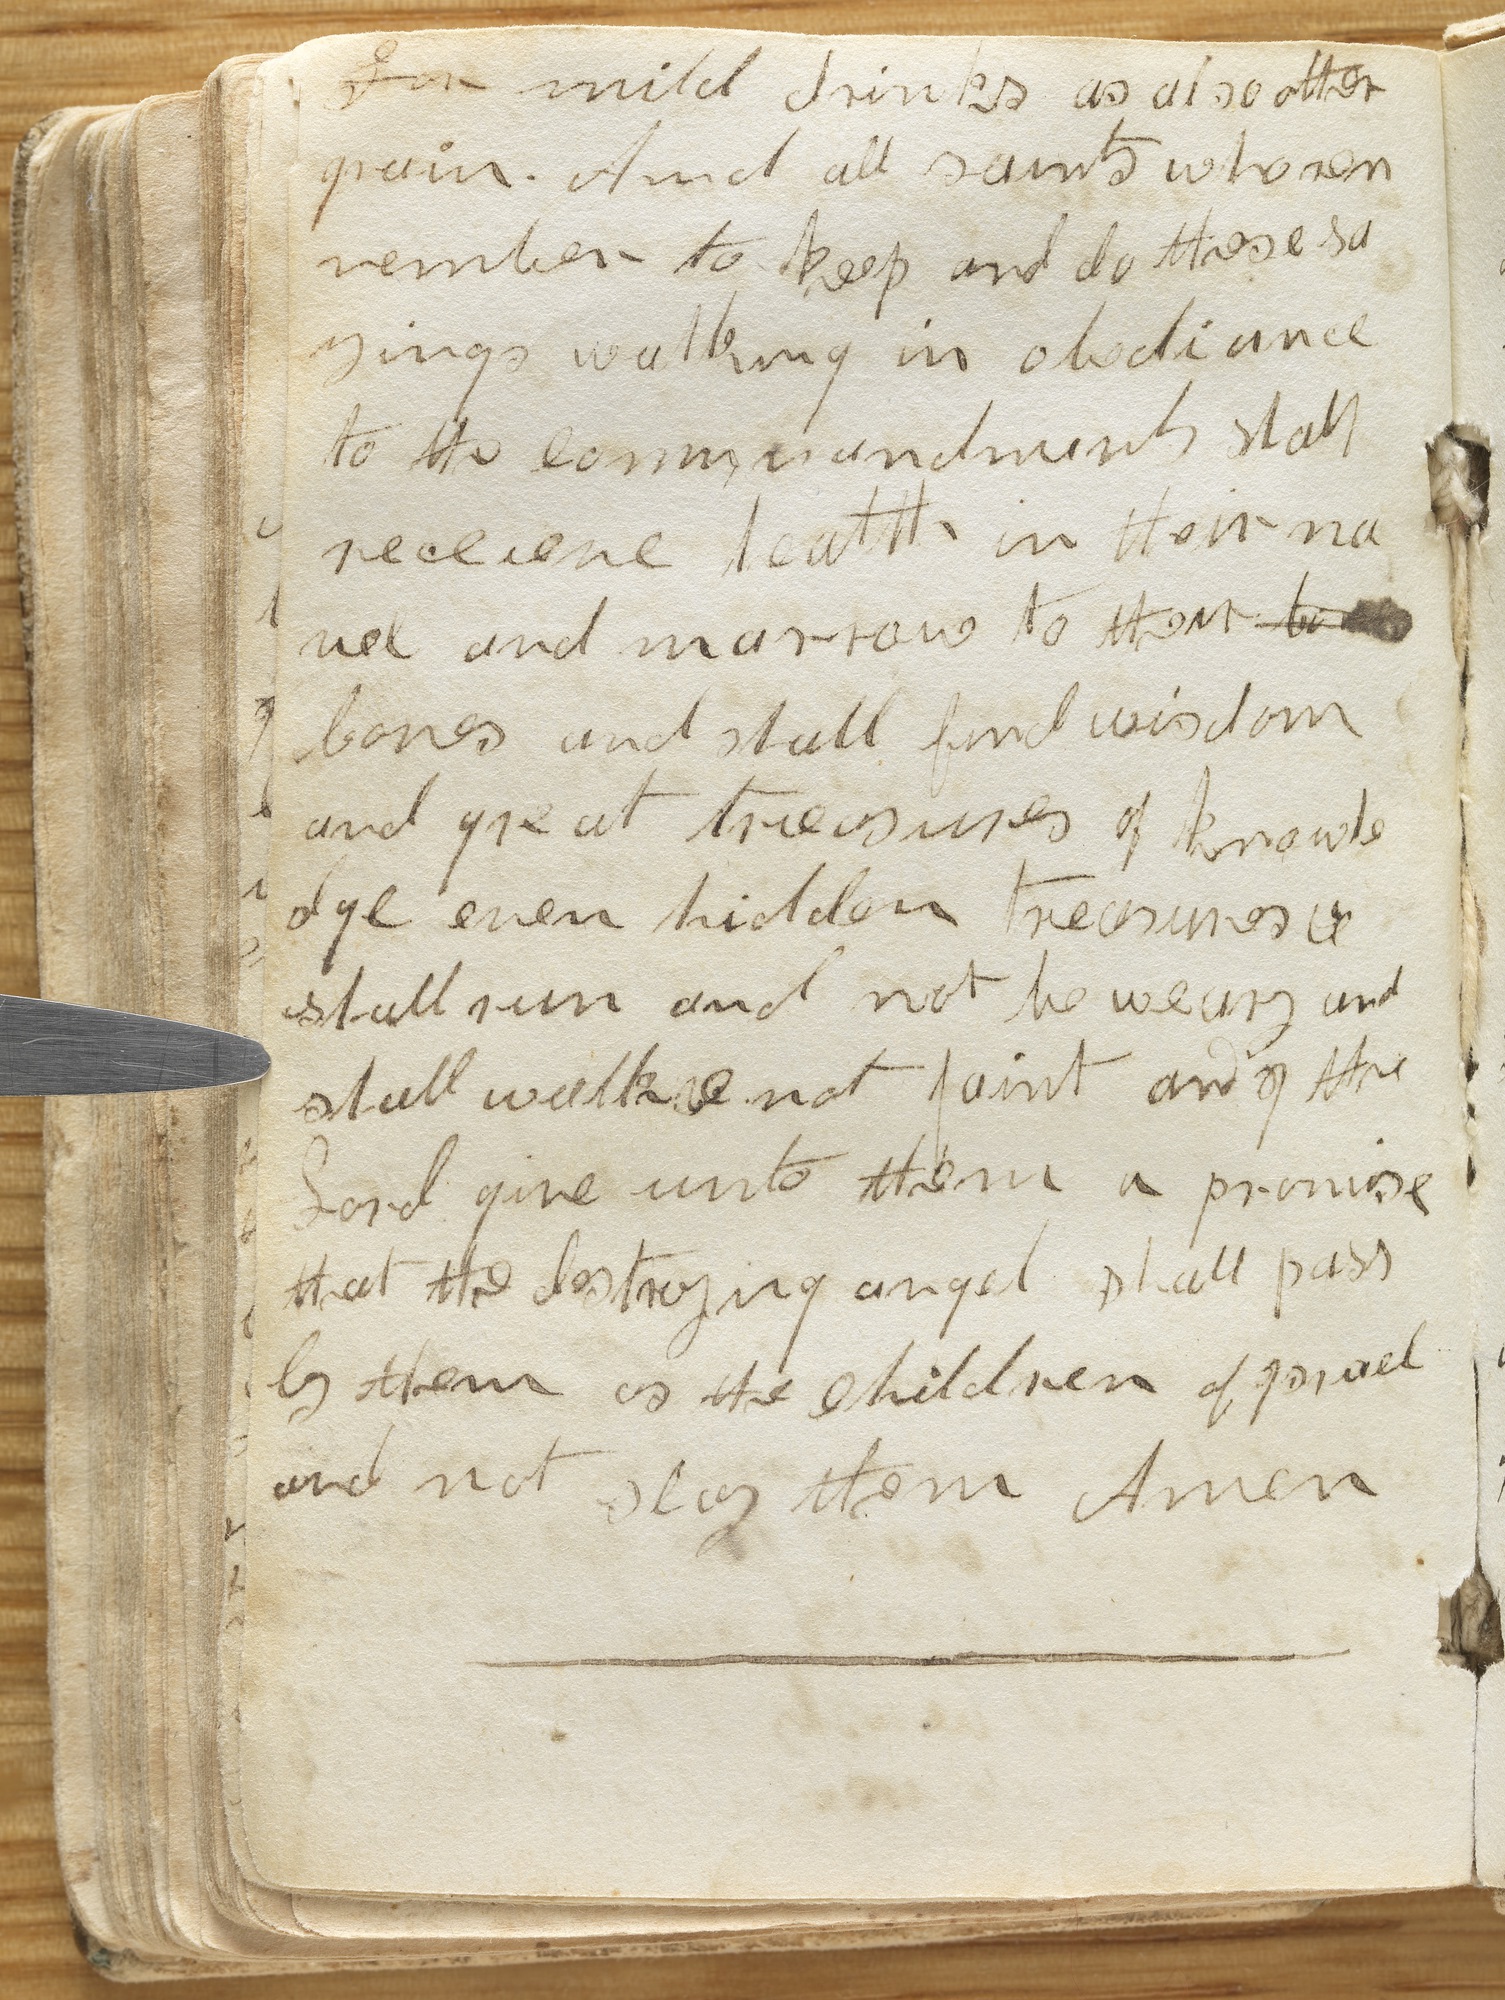 For mild drinks as also other
grain. And all saints who ren
rember to keep and do these sa
yings walking in obediance
to the commmandments shall
receieve health in their na
vel and marrow to their bo
bones and shall find wisdom
and great treasures of knowle
dge even hidden treasures &
shall run and not be weary and
shall walk & not faint and I the
Lord give unto them a promise
that the destroying angel shall pass
by them as the children of Israel
and not slay them Amen